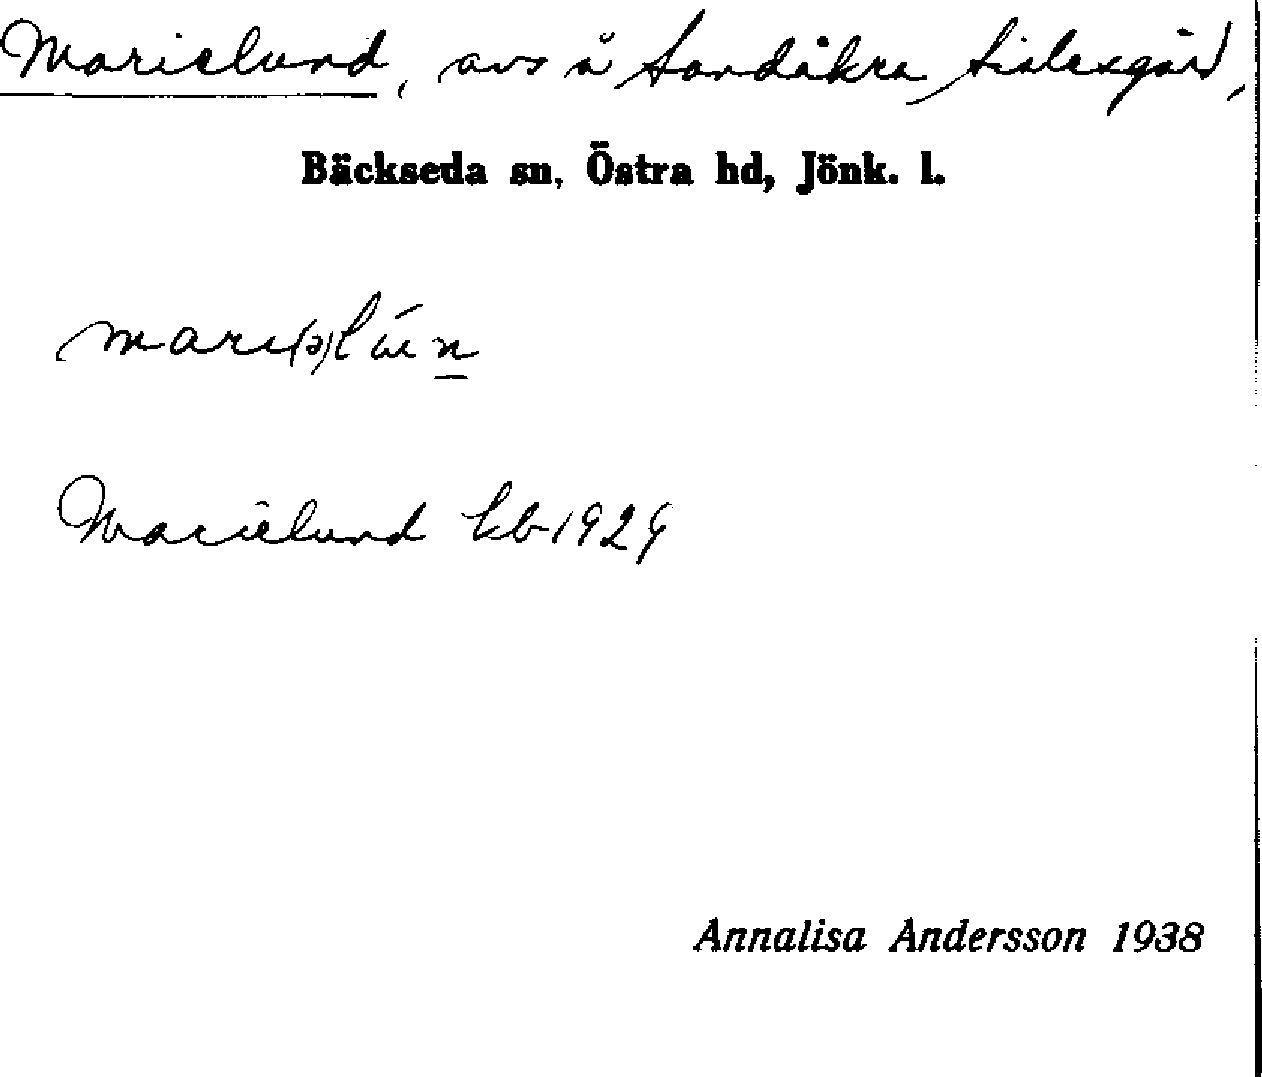 Marielund, avs å Sandåkra
Bäckseda sn, Östra hd, Jönk. l.
mari(ə)lún
Marielund kb 1929
Annalisa Andersson 1938